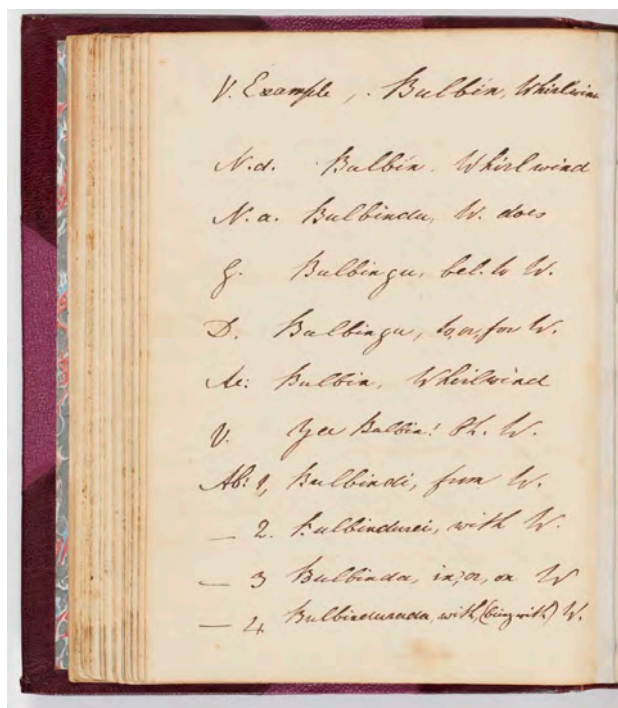 V. Example, . Bulbin, Whirlwind
N.d. Bulbin. Whirlwind
N.a. Bulbindu, W. does
G. Bulbingu, bel. to W.
D. Bulbingu, to, or, for W.
Ac: Bulbin, Whirlwind
V. Yee Bulbin! Oh. W.
Ab: 1, Bulbindi, from W.
— 2. Bulbindurei, with W.
— 3 Bulbinda, in, or, on W
— 4 Bulbindurada, with, (being with) W.